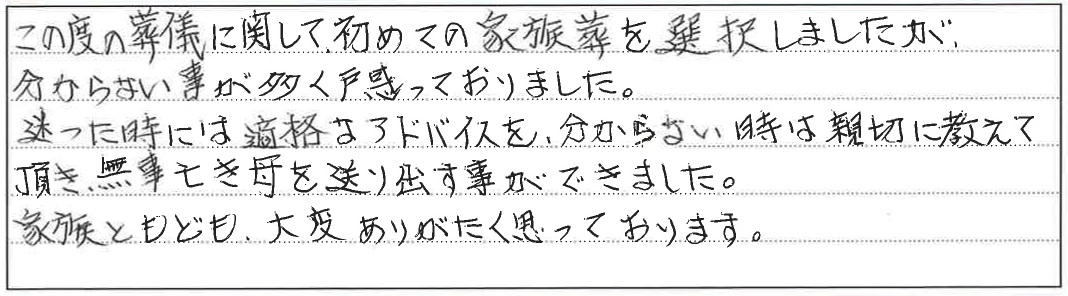 この度の葬儀に関して、初めての家族葬を選択しましたが、
分からない事が多く戸惑っておりました。
迷った時には適格なアドバイスを、分からない時は親切に教えて
頂き、無事亡き母を送り出す事ができました。
家族ともども、大変ありがたく思っております。